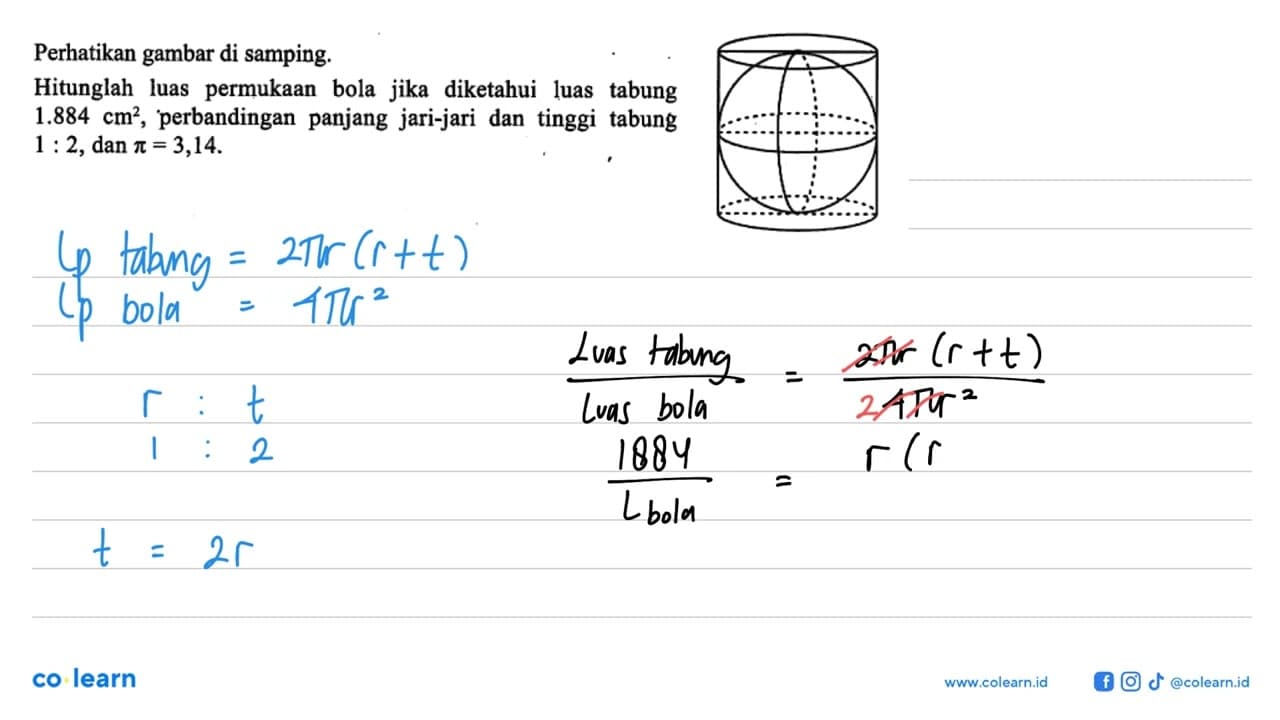 Perhatikan gambar di samping.
Hitunglah luas permukaan bola jika diketahui luas tabung
1.884 cm², perbandingan panjang jari-jari dan tinggi tabung
1 : 2, dan π = 3,14.
Lp tabung = 2πr (r + t)
Lp bola = 4πr²
Luas tabung = 2πr (r + t)
Luas bola 2 4πr²
r : t
1 : 2
1884 = r (r
L bola
t = 2r
co learn
www.colearn.id @colearn.id